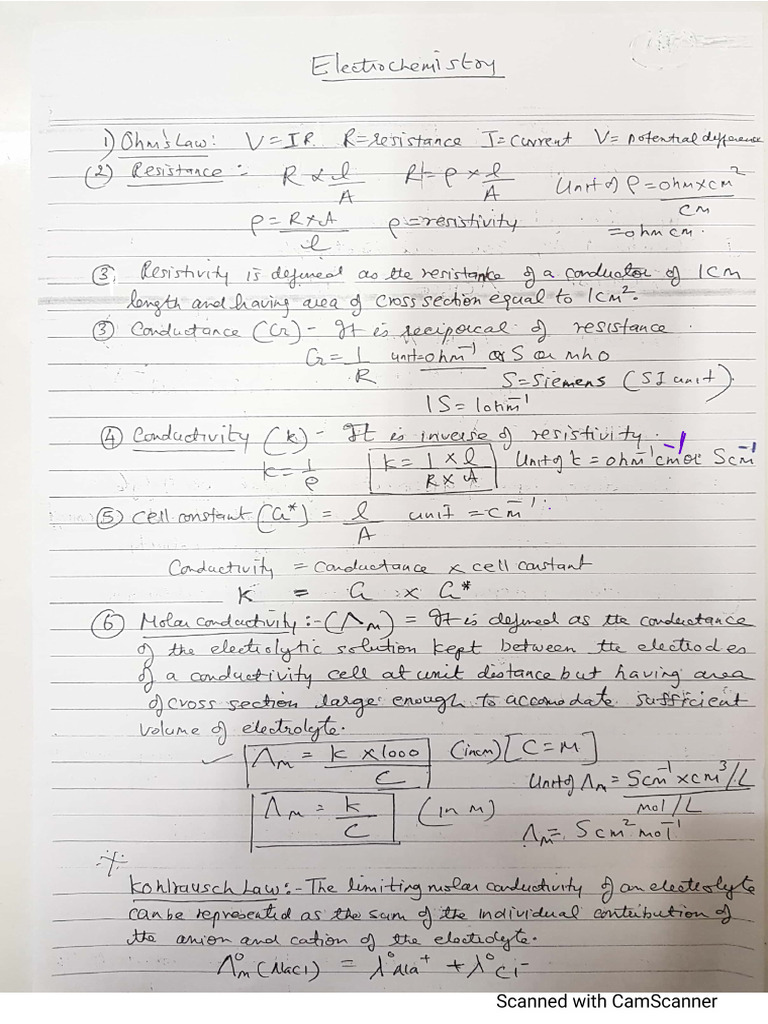 Electrochemistry
1) Ohm's Law: V = IR R = resistance I = Current V = potential difference
(2) Resistance :- R ∝ l/A R = ρ × l/A Unit of ρ = ohm×cm²/cm
ρ = R×A/l ρ = resistivity = ohm cm.
(3) Resistivity is defined as the resistance of a conductor of 1cm
length and having area of cross section equal to 1cm².
(3) Conductance (G) - It is reciprocal of resistance.
G = 1/R unit = ohm⁻¹ or S or mho
S = Siemens (SI unit).
1S = 1ohm⁻¹
(4) Conductivity (k) - It is inverse of resistivity.
k = 1/ρ k = 1/R × l/A Unit of k = ohm⁻¹ cm⁻¹ or S cm⁻¹
(5) Cell constant (G*) = l/A unit = cm⁻¹.
Conductivity = conductance × cell constant
K = G × G*
(6) Molar conductivity :- (Λm) = It is defined as the conductance
of the electrolytic solution kept between the electrodes
of a conductivity cell at unit distance but having area
of cross section large enough to accomodate sufficient
volume of electrolyte.
Λm = k × 1000/C (in cm) [C = M]
Unit of Λm = S cm⁻¹ × cm³/L / mol/L
Λm = k/C (in m)
Λm = S cm² mol⁻¹
Kohlrausch Law :- The limiting molar conductivity of an electrolyte
can be represented as the sum of the individual contribution of
the anion and cation of the electrolyte.
Λ°m (NaCl) = λ°Na⁺ + λ°Cl⁻
Scanned with CamScanner